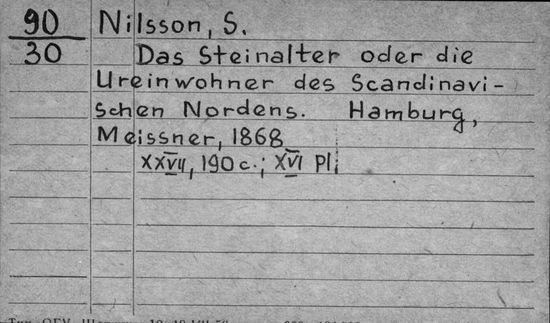 90 Nilsson, S.
30 Das Steinalter oder die
Ureinwohner des Scandinavi-
schen Nordens. Hamburg,
Meissner, 1868
XXVII, 190 c.; XVI Pl.